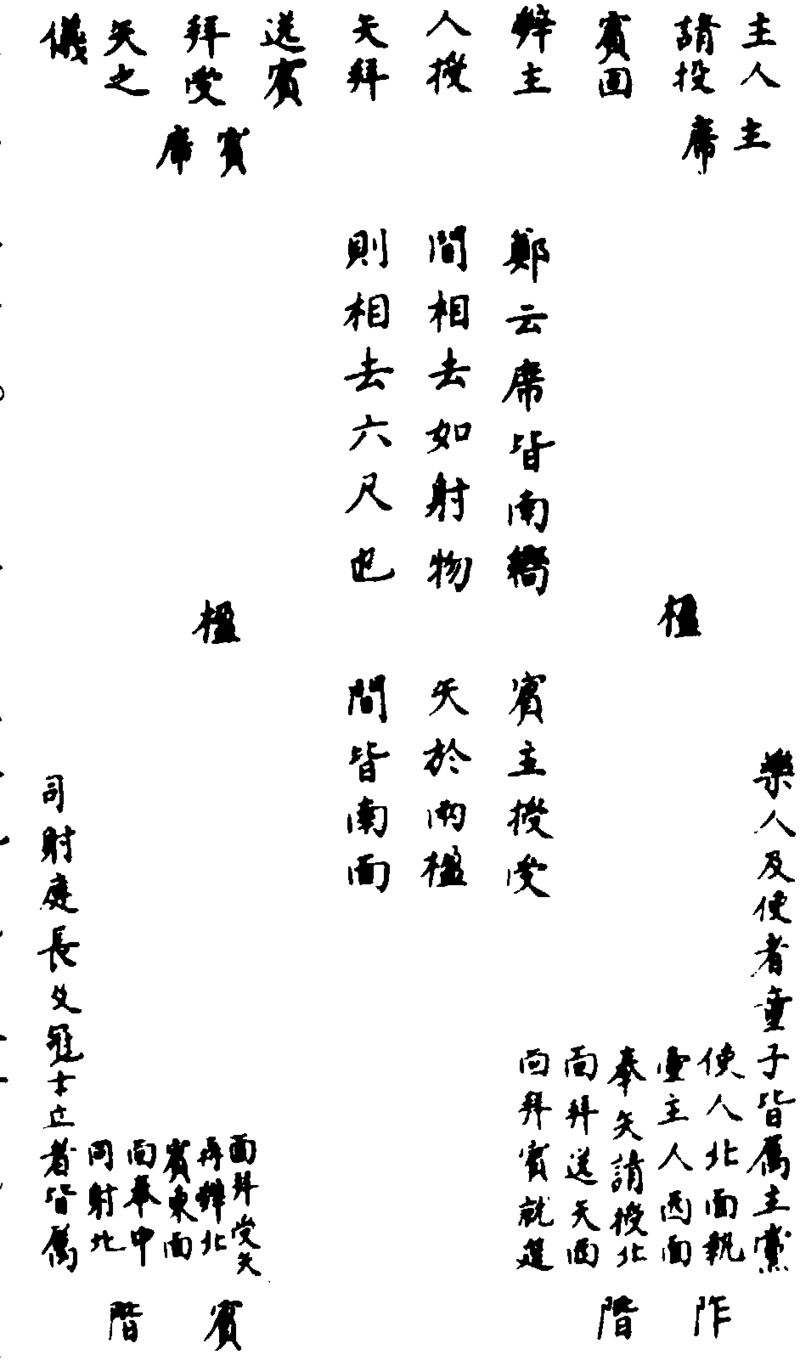 主人
請投
賓固
辤主
人授
矢拜
送賓
拜受
矢之
儀
主
席
賓
席
鄭云席皆南嚮
間相去如射物
則相去六尺也
楹
楹
賓主授受
矢於兩楹
間皆南面
樂人及使者童子皆屬主黨
使人北面執
壷主人西面
奉矢請投北
面拜送矢西
向拜賓就筵
阼
階
面拜受矢
再辤北
賓東面
向奉中
司射北
司射庭長及冠士立者皆屬
賓
階